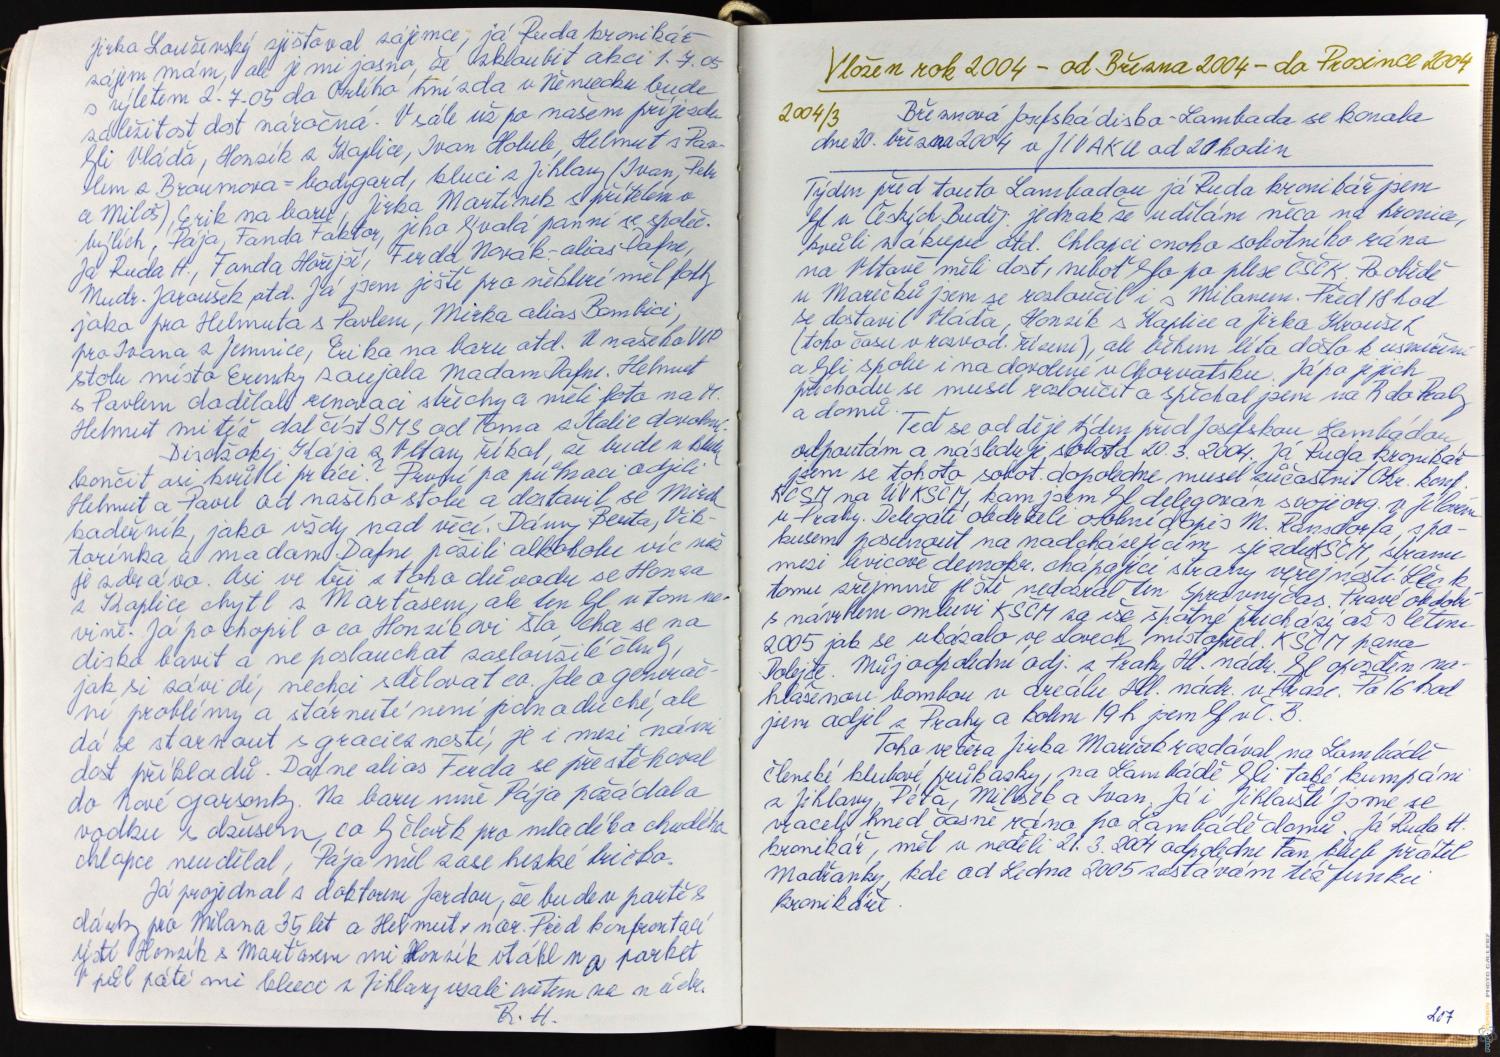 Jirka Louženský zjišťoval zájemce, já Ruda kronikář
zájem mám, ale je mi jasno, že skloubit akci 1.7.05
s výletem 2.7.05 do Orlího hnízda v Německu bude
záležitost dost náročná. V sále už po našem příjezdu
byli Vláďa, Honzík z Kaplice, Ivan Holub, Helmut s Pav-
lem z Broumova = bodygard, kluci z Jihlavy (Ivan, Petr
a Miloš), Erik na baru, Jirka Martínek s přítelem v
bílých, Pája, Fanda Faktor, jeho bývalá panní se společ.
Já Ruda H., Fanda Hořejší, Ferda Novák - alias Dafne,
Mudr. Jaroušek atd. Já jsem ještě pro některé měl fotky
jako pro Helmuta s Pavlem, Mirka alias Bambici,
pro Ivana z Jemnice, Erika na baru atd. U našeho VIP
stolu místo Erenky zaujala Madam Dafne. Helmut
s Pavlem dodělali renovaci střechy a měli foto na M.
Helmut mi též dal číst SMS od Toma z Italie dovolené.
Diržokej Kája z Vltavy říkal, že bude v
končit asi kvůli práci? První po půlnoci odjeli
Helmut a Pavel od našeho stolu a dostavil se Mirek
kadeřník, jako vždy nad věcí. Danny Berta, Vik-
torinka a madam Dafne požili alkoholu víc než
je zdrávo. Asi ve tři z toho důvodu se Honza
z Kaplice chytl s Marťasem, ale ten byl v tom ne-
vinně. Já pochopil o co Honzíkovi šlo chce se na
disko bavit a ne poslouchat zasloužilé členy,
jak si závidí, nechci sdělovat co. Jde o generač-
ní problémy a stárnutí není jednoduché, ale
dá se stárnout s graciézností, je i mezi námi
dost příkladů. Dafne alias Ferda se přestěhoval
do nové garsonky. Na baru mně Pája požádal o
vodku s džusem, co by člověk pro mladého chudého
chlapce neudělal, Pája měl zase hezké tričko.
Já projednal s doktorem Jardou, že bude v partě s
dárky pro Milana 35 let a Helmut x nar. Před konfrontací
Honzík s Marťasem mi Honzík vtáhl na parket
V půl páté mi kluci z Jihlavy vzali autem na nádr.
R. H.
Vložen rok 2004 - od Března 2004 - do Prosince 2004
2004/3 Březnová Josefská disko - Lambada se konala
dne 20. března 2004 v JIVAKU od 21 hodin
Týden před touto Lambadou já Ruda kronikář jsem
byl v Českých Buděj. jednak že udělám něco na kronice,
kvůli nákupu atd. Chlapci onoho sobotního rána
na Vltavě měli dost, neboť bylo po plese ČSČK. Po obědě
u Marečků jsem se rozloučil i s Milanem. Před 18 hod
se dostavil Vláďa, Honzík z Kaplice a Jirka Kroužek
(toho času v rozvod. řízení), ale během léta došlo k usmíření
a byli spolu i na dovolené v Chorvatsku. Já po jejich
příchodu se musel rozloučit a spěchal jsem na R do Prahy
a domů.
Teď se od děje týden před Josefskou Lambádou
odpoutám a následuje sobota 20.3.2004. Já Ruda kronikář
jsem se tohoto sobot. dopoledne musel zúčastnit Obv. konf.
KČSM na ÚV KSČM, kam jsem byl delegován svojí org. v Jílovém
u Prahy. Delegáti obdrželi osobní dopis M. Ransdorfa s po-
kusem posunout na nadcházejícím sjezdu KSČM, stranu
mezi levicově demokr. chápající strany veřejností. Leč k
tomu zřejmně ještě nedozrál ten správný čas. Pravé období
s návrhem omluvi KSČM za vše špatné přichází až s létem
2005 jak se ukázalo ve slovech místopřed. KSČM pana
Dolejše. Můj odpolední odj. z Prahy Hl. nádr. byl opožděn na-
hlášenou bombou v areálu Hl. nádr. v Praze. Po 16 hod
jsem odjel z Prahy a kolem 19 h jsem byl v Č. B.
Toho večera Jirka Mareček rozdával na Lambádě
členské klubové průkazky, na Lambádě byli také kumpáni
z Jihlavy, Péťa, Miloušek a Ivan. Já i jihlavští jsme se
vraceli hned časně ráno po Lambádě domů. Já Ruda H.
kronikář, měl v neděli 21.3.2004 odpoledne Fan klub přátel
Modřanky, kde od Ledna 2005 zastávám též funkci
kronikáře.
207